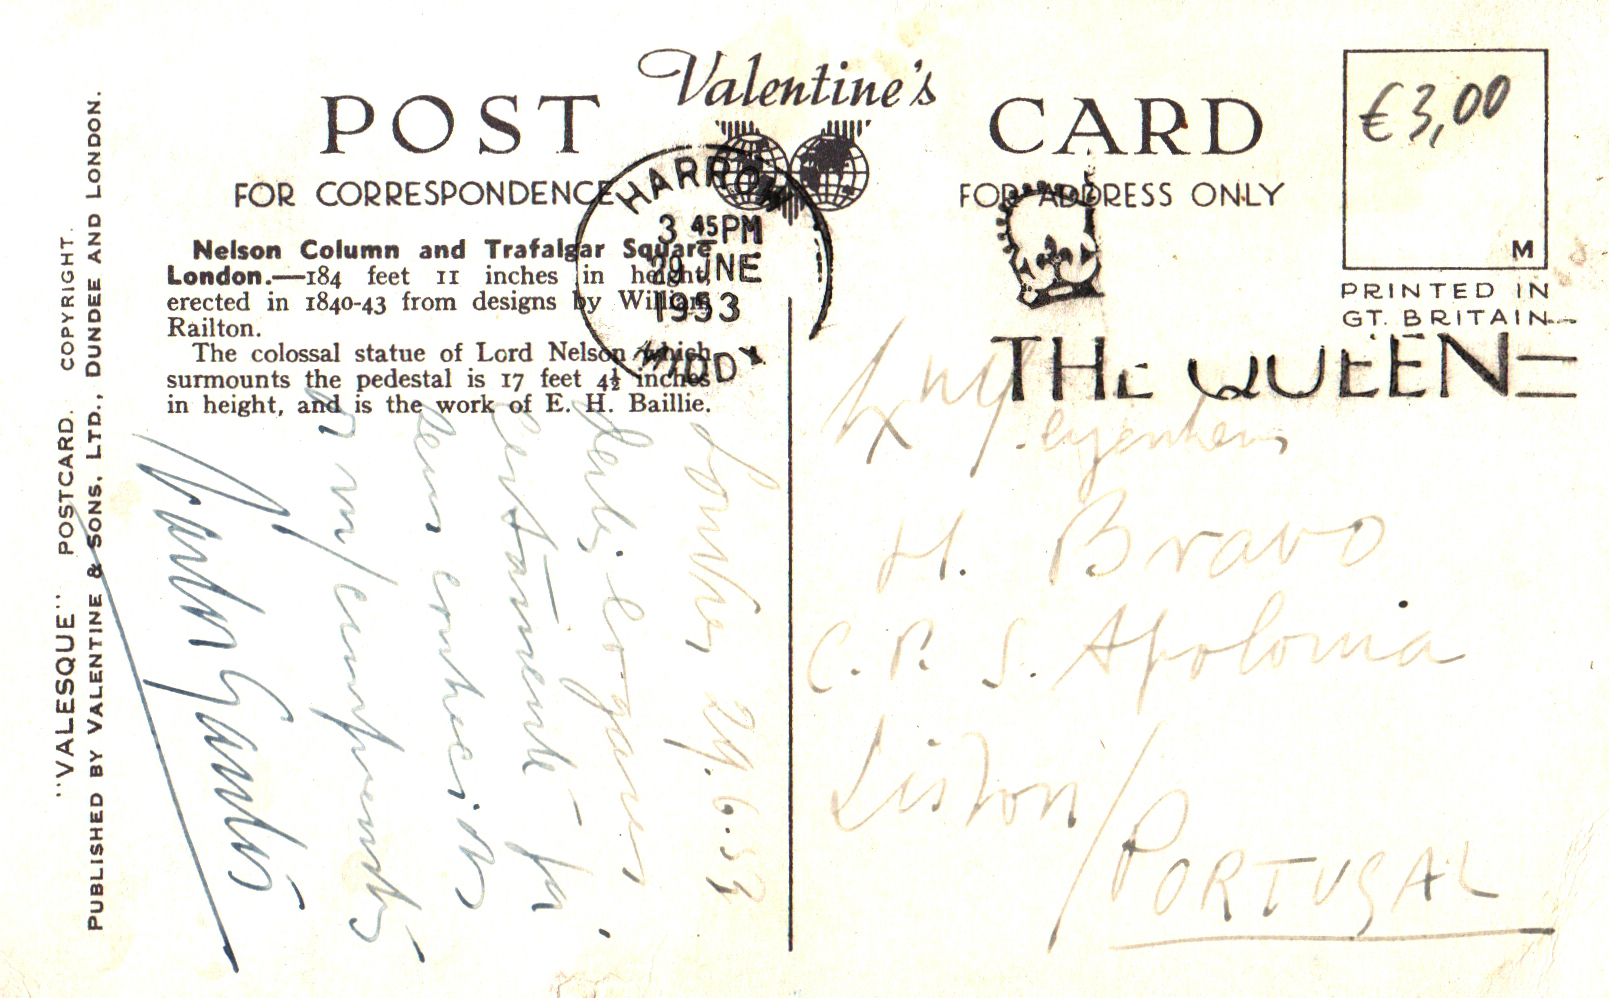 Valentine's
POST CARD
FOR CORRESPONDENCE
FOR ADDRESS ONLY
Nelson Column and Trafalgar Square,
London.—184 feet 11 inches in height,
erected in 1840-43 from designs by William
Railton.
The colossal statue of Lord Nelson which
surmounts the pedestal is 17 feet 4½ inches
in height, and is the work of E. H. Baillie.
"VALESQUE" POSTCARD. COPYRIGHT.
PUBLISHED BY VALENTINE & SONS, LTD., DUNDEE AND LONDON.
HARROW
3 45 PM
29 JNE
1953
MIDDX
€3,00
M
PRINTED IN
GT. BRITAIN
THE QUEEN
Londres, 29.6.53
Certamente
cumprimentos
H. Bravo
C. P. S. Apolonia
Lisbon/
PORTUGAL